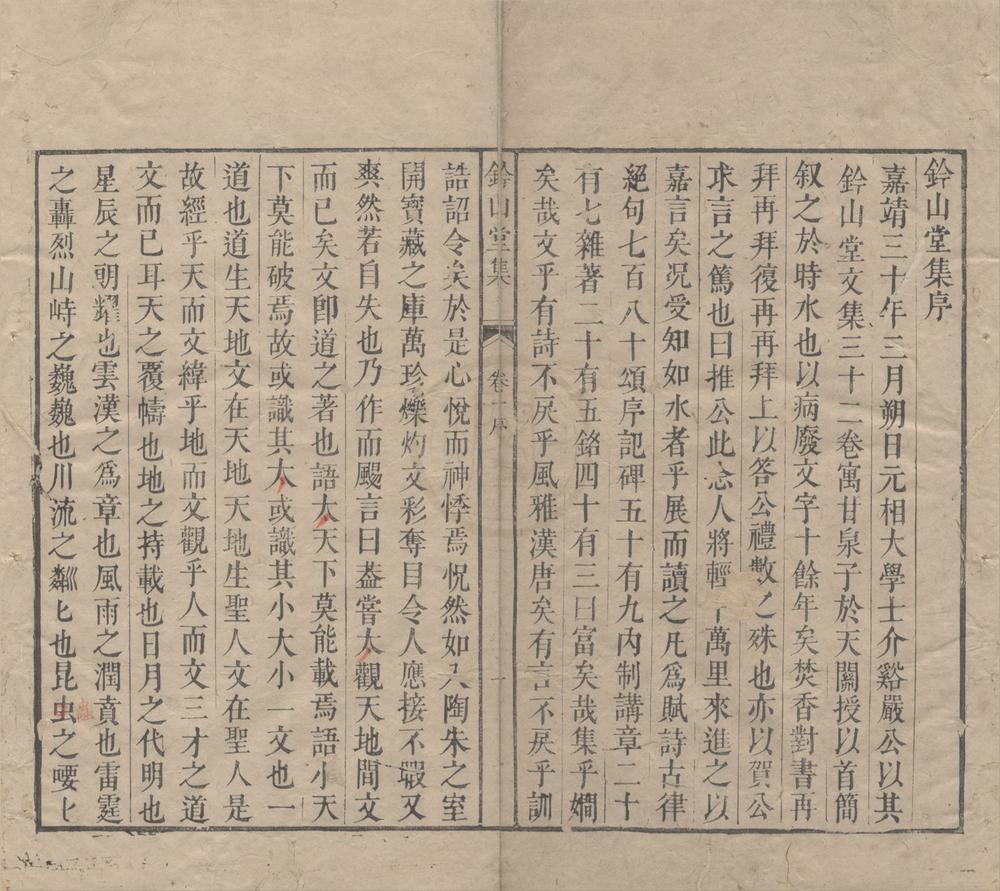 鈐山堂集序
嘉靖三十年三月朔日元相大學士介谿嚴公以其
鈐山堂文集三十二卷寓甘泉子於天關授以首簡
叙之於時水也以病廢文字十餘年矣焚香對書再
拜再拜復再再拜上以答公禮數之殊也亦以賀公
求言之篤也曰推公此念人將輕千萬里來進之以
嘉言矣况受知如水者乎展而讀之凡爲賦詩古律
絕句七百八十頌序記碑五十有九内制講章二十
有七雜著二十有五銘四十有三曰富矣哉集乎嫺
矣哉文乎有詩不戾乎風雅漢唐矣有言不戾乎訓
鈐山堂集 卷十序 一
誥詔令矣於是心悅而神悸焉怳然如入陶朱之室
開寶藏之庫萬珍爍灼文彩奪目令人應接不暇又
爽然若自失也乃作而颺言曰葢嘗大觀天地間文
而已矣文卽道之著也語大天下莫能載焉語小天
下莫能破焉故或識其大或識其小大小一文也一
道也道生天地文在天地天地生聖人文在聖人是
故經乎天而文緯乎地而文觀乎人而文三才之道
文而已耳天之覆幬也地之持載也日月之代明也
星辰之朝耀也雲漢之爲章也風雨之潤賁也雷霆
之轟烈山峙之巍巍也川流之粼匕也昆虫之喓匕